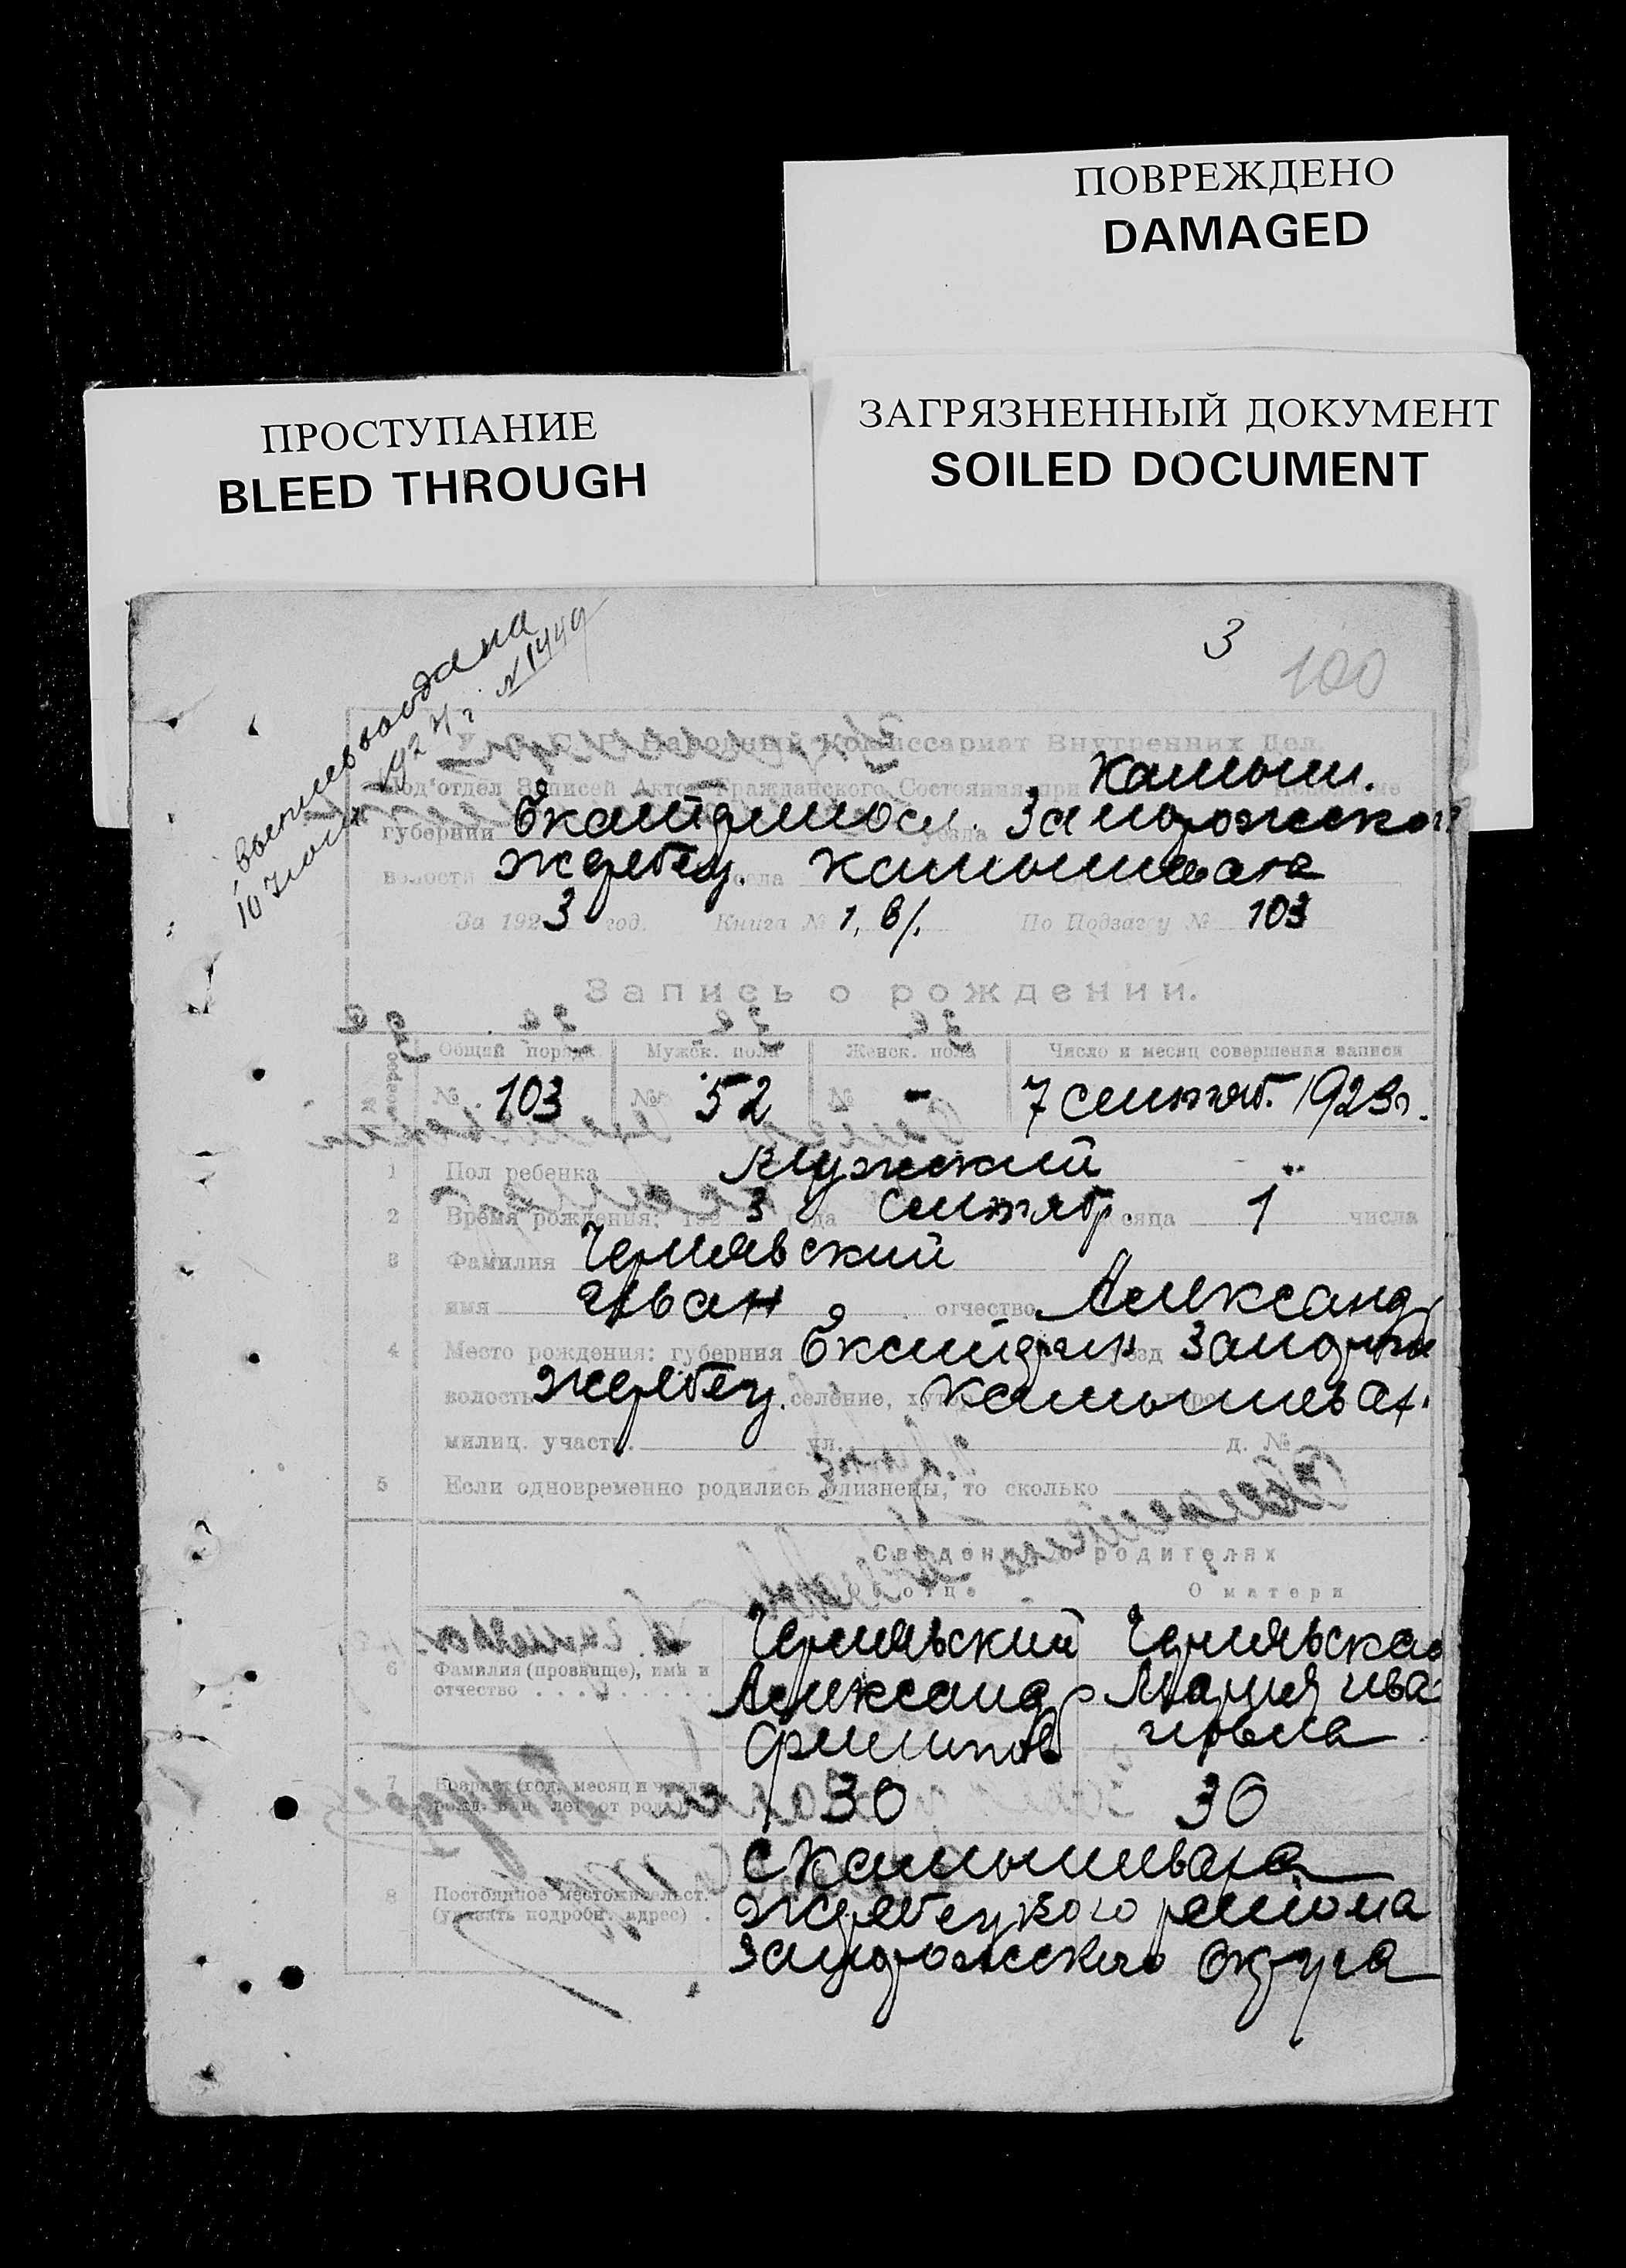 ПОВРЕЖДЕНО
DAMAGED
ПРОСТУПАНИЕ
BLEED THROUGH
ЗАГРЯЗНЕННЫЙ ДОКУМЕНТ
SOILED DOCUMENT
3
100
выпись выдана
10 № 1449
Народный Комиссариат Внутренних Дел.
Под'отдел Записей Актов Гражданского Состояния при Камыш.
губернии Екатериносл. уезда Запорожской
волости Жеребец. села Камышеваха
За 1923 год. Книга № 1, в/. По Подзагсу № 103
Запись о рождении.
Общий порядк. Мужск. пола Женск. пола Число и месяц совершения записи
№ 103 № 52 № - 7 сентяб. 1923 г.
1 Пол ребенка Мужский
2 Время рождения: 1923 года Сентябр месяца 1 числа
3 Фамилия Чернявский
имя Иван отчество Александр
4 Место рождения: губерния Екатерин уезд
волость Жеребец. селение, хутор Камышеват.
милиц. участк. ул. д. №
5 Если одновременно родились близнецы, то сколько
Сведения о родителях
Об отце О матери
6 Фамилия (прозвище), имя и отчество Чернявский Чернявская
Александр Мария Ива
Филипов новна
7 Возраст (год, месяц и число рожд. или лет от роду) 30 30
8 Постоянное местожительст. (указать подробн. адрес) С Камышеваха
Жеребецкого района
Запорожского округа